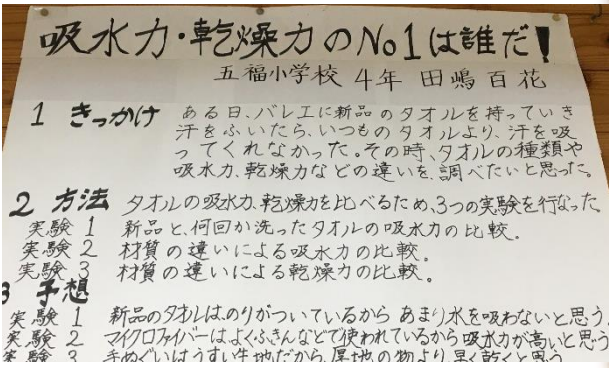 吸水力・乾燥力のNo1は誰だ!
五福小学校 4年 田嶋百花
1 きっかけ ある日、バレエに新品のタオルを持っていき
汗をふいたら、いつものタオルより、汗を吸
ってくれなかった。その時、タオルの種類や
吸水力、乾燥力などの違いを、調べたいと思った。
2 方法 タオルの吸水力、乾燥力を比べるため、3つの実験を行なった
実験 1 新品と、何回か洗ったタオルの吸水力の比較。
実験 2 材質の違いによる吸水力の比較。
実験 3 材質の違いによる乾燥力の比較。
3 予想
実験 1 新品のタオルは、のりがついているから あまり水を吸わないと思う。
実験 2 マイクロファイバーは、よくふきんなどで使われているから 吸水力が高いと思う
実験 3 手ぬぐいはうすい生地だから、厚地の物より 早く乾くと思う